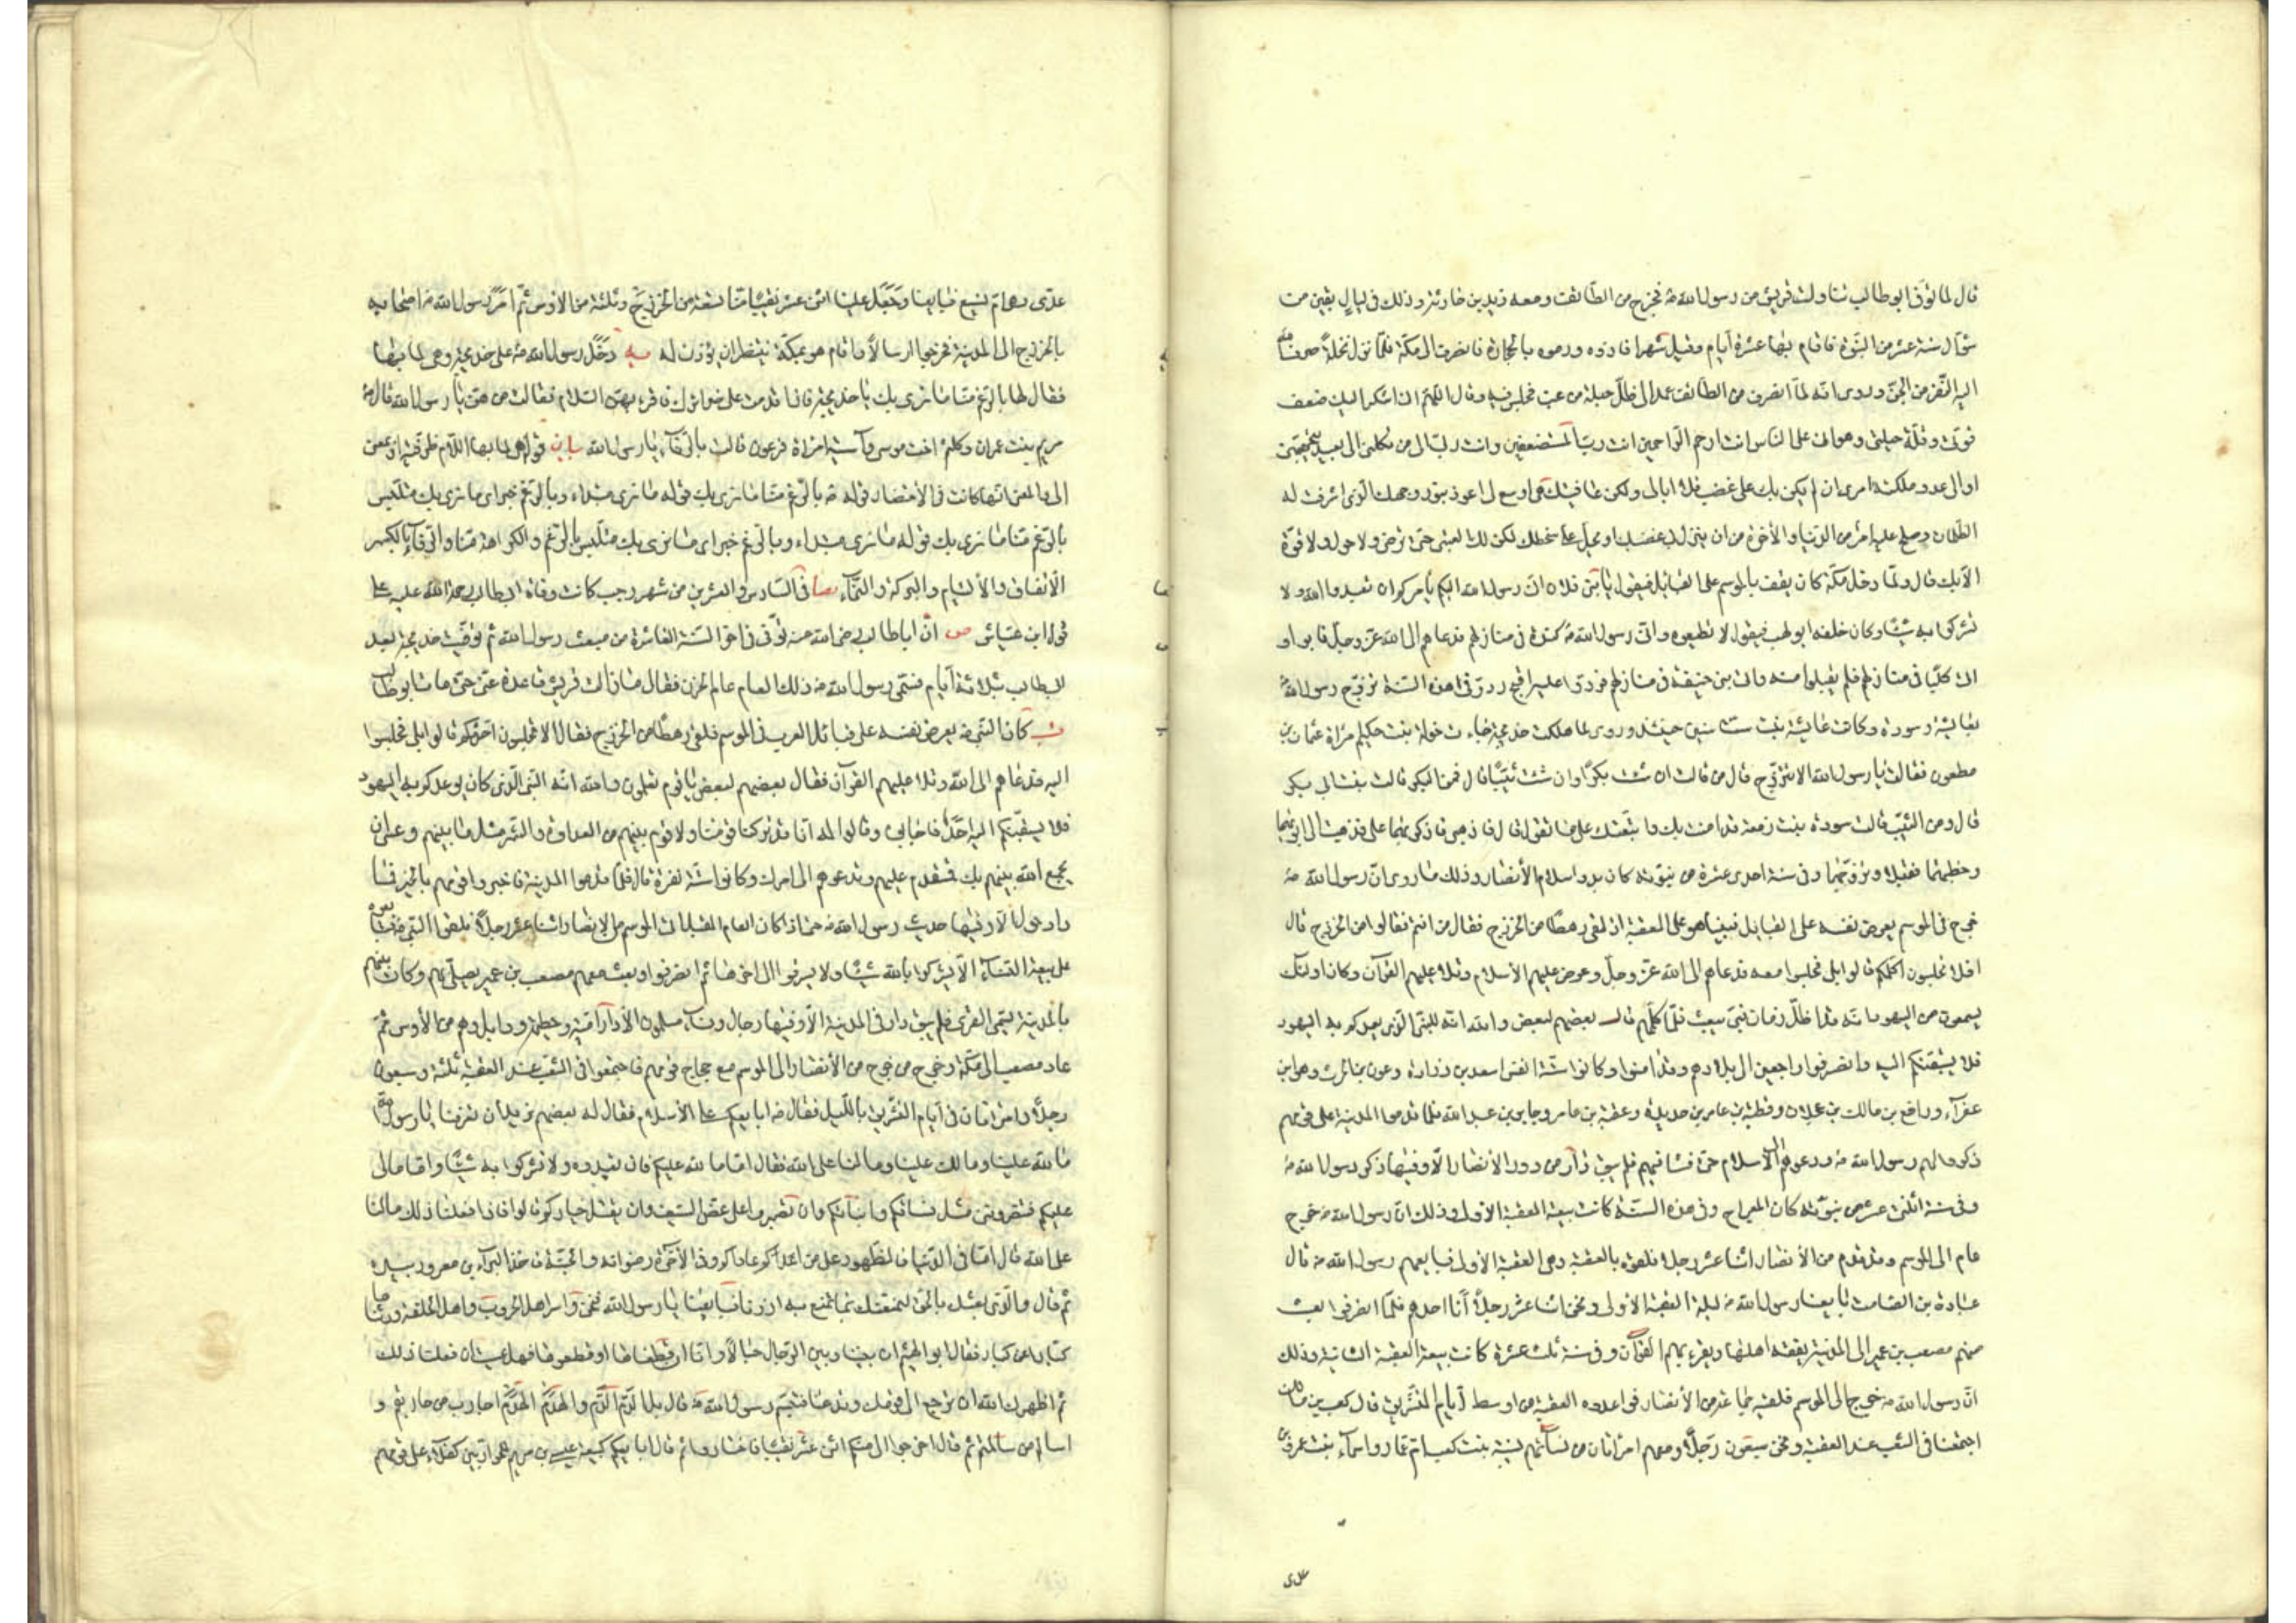 قال لما توفى ابو طالب تناولت قريش من رسول الله ص فخرج من الطائف ومعه زيد بن حارثة وذلك في ليال بقين من
شوال سنة عشر من النبوة فاقام بها عشرة ايام وقيل شهرا فاذوه ورموه بالحجارة فانصرف الى مكة فلما نزل نخلة صرف الله
اليه النفر من الجن وروى انه لما انصرف من الطائف عمد الى ظل حبلة من عنب فجلس فيه وقال اللهم انى اشكو اليك ضعف
قوتى وقلة حيلتى وهوانى على الناس انت ارحم الراحمين انت رب المستضعفين وانت ربى الى من تكلنى الى بعيد يتجهمنى
او الى عدو ملكته امرى ان لم يكن بك على غضب فلا ابالى ولكن عافيتك هى اوسع لى اعوذ بنور وجهك الذى اشرقت له
الظلمات وصلح عليه امر من الدنيا والآخرة من ان ينزل بى غضبك او يحل على سخطك لكن لك العتبى حتى ترضى ولا حول ولا قوة
الا بك قال ولما دخل مكة كان يقف بالموسم على القبائل فيقول يا بنى فلان انى رسول الله اليكم يامركم ان تعبدوا الله ولا
تشركوا به شيئا وكان خلفه ابو لهب فيقول لا تطيعوه واتى رسول الله ص كندة فى منازلهم فدعاهم الى الله عز وجل فابوا و
اتى كلبا فى منازلهم فلم يقبلوا منه واتى بنى حنيفة فى منازلهم فردوا عليه اقبح رد وفى هذه السنة تزوج رسول الله ص
بعايشة وسودة وكانت عايشة بنت ست سنين حينئذ وروى لما هلكت خديجة جاءت خولة بنت حكيم امراة عثمان بن
مظعون فقالت يا رسول الله الا تتزوج قال من قالت ان شئت بكرا وان شئت ثيبا قال فمن البكر قالت بنت ابى بكر
قال ومن الثيب قالت سودة بنت زمعة قد امنت بك واتبعتك على ما تقول قال فاذهبى فاذكريهما على فذهبت الى ابويهما
وخطبتهما فقبلا وتزوجهما وفى سنة احدى عشرة من نبوته كان بدو اسلام الأنصار وذلك ما روى ان رسول الله ص
خرج فى الموسم يعرض نفسه على القبايل فبينا هو على العقبة اذ لقى رهطا من الخزرج فقال من انتم فقالوا من الخزرج قال
افلا تجلسون اكلمكم قالوا بلى فجلسوا معه فدعاهم الى الله عز وجل وعرض عليهم الأسلام وتلا عليهم القرآن وكان اولئك
يسمعون من اليهود انه قد اظل زمان نبى يبعث فلما كلمهم قال بعضهم لبعض والله انه للنبى الذى يعدكم به اليهود
فلا يسبقنكم اليه وانصرفوا راجعين الى بلادهم وقد امنوا وكانوا ستة انفس اسعد بن زرارة وعون بن الحرث وهو ابن
عفرآء ورافع بن مالك بن عجلان وقطبة بن عامر بن حديدة وعقبة بن عامر وجابر بن عبد الله فلما قدموا المدينة على قومهم
ذكروا لهم رسول الله ص ودعوهم الى الأسلام حتى فشا فيهم فلم يبق دار من دور الانصار الا وفيها ذكر رسول الله ص
وفى سنة اثنتى عشر من نبوته كان المعراج وفى هذه السنة كانت بيعة العقبة الاولى وذلك ان رسول الله ص خرج
عام الى الموسم وقد قدم من الأنصار اثنا عشر رجلا فلقوه بالعقبة وهى العقبة الأولى فبايعهم رسول الله ص قال
عبادة بن الصامت بايعنا رسول الله ص ليلة العقبة الأولى ونحن اثنا عشر رجلا أنا احدهم فلما انصرفوا بعث
معهم مصعب بن عمير الى المدينة يفقه اهلها ويقرءهم القرآن وفى سنة ثلث عشرة كانت بيعة العقبة الثانية وذلك
ان رسول الله ص خرج الى الموسم فلقيه جماعة من الأنصار فواعدوه العقبة من اوسط أيام التشريق قال كعب بن مالك
اجتمعنا فى الشعب عند العقبة ونحن سبعون رجلا ومعهم امرأتان من نسائهم نسيبة بنت كعب ام عمار واسمآء بنت عمرو بن
عدى
عدى وهى ام منيع فبايعنا وجعل علينا اثنى عشر نقيبا منا تسعة من الخزرج وثلثة من الاوس ثم امر رسول الله ص اصحابه
بالخروج الى المدينة فخرجوا ارسالا واقام هو بمكة ينتظر ان يؤذن له يه دخل رسول الله ص على خديجة وهى لما بها
فقال لها بالرغم منا ما نرى بك يا خديجة فاذا قدمت على ضرائرك فاقرءيهن السلام فقالت من هن يا رسول الله قال ص
مريم بنت عمران وكلثم اخت موسى وآسية امراة فرعون قالت بالرفآء يا رسول الله بيان قوله وهى لما بها اللام ظرفية او بمعنى
الى والمعنى انها كانت فى الأحتضار قوله ص بالرغم منا ما نرى بك قوله ما نرى مبتداء وبالرغم خبر اى ما نرى بك متلبس
بالرغم منا ما نرى بك قوله ما نرى مبتداء وبالرغم خبر اى ما نرى بك متلبس بالرغم والكراهة منا والرفآء بالكسر
الاتفاق والألتيام والبركة والنمآء صا فى السادس والعشرين من شهر رجب كانت وفاة ابى طالب رحمة الله عليه على
قول ابن عياش ص ان ابا طالب رضى الله عنه توفى فى اخر السنة العاشرة من مبعث رسول الله ثم توفيت خديجة بعد
ابى طالب بثلاثة أيام فسمى رسول الله ص ذلك العام عام الحزن فقال ما زالت قريش قاعدة عنى حتى مات ابو طالب
كان النبى ص يعرض نفسه على قبائل العرب فى الموسم فلقى رهطا من الخزرج فقال الا تجلسون احدثكم قالوا بلى فجلسوا
اليه فدعاهم الى الله وتلا عليهم القرآن فقال بعضهم لبعض يا قوم تعلمون والله انه النبى الذى كان يوعدكم به اليهود
فلا يسبقنكم اليه احد فاجابوه وقالوا له انا قد تركنا قومنا ولا قوم بينهم من العداوة والشر مثل ما بينهم وعسى ان
يجمع الله بينهم بك فتقدم عليهم وتدعوهم الى امرك وكانوا ستة نفر قال فلما قدموا المدينة فاخبروا قومهم بالخبر فما
دار حول الا وفيها حديث رسول الله ص حتى اذا كان العام المقبل اتى الموسم من الانصار اثنا عشر رجلا فلقوا النبى ص فبايعوه
على بيعة النسآء ألا يشركوا بالله شيئا ولا يسرقوا الى اخرها ثم انصرفوا وبعث معهم مصعب بن عمير يصلى بهم وكان بينهم
بالمدينة يسمى المقرى فلم يبق دار فى المدينة الا وفيها رجال ونسآء مسلمون الا دار امية وخطمة ووايل وهم من الأوس ثم
عاد مصعب الى مكة وخرج من خرج من الأنصار الى الموسم مع حجاج قومهم فاجتمعوا فى الشعب عند العقبة ثلثة وسبعون
رجلا وامرأتان فى أيام التشريق بالليل فقال ص ابايعكم على الأسلام فقال له بعضهم نريد ان تعرفنا يا رسول الله
ما لله علينا وما لك علينا وما لنا على الله فقال اما ما لله عليكم فان تعبدوه ولا تشركوا به شيئا واما ما لى
عليكم فتنصروننى مثل نسائكم وابنائكم وان تصبروا على عض السيف وان يقتل خياركم قالوا فاذا فعلنا ذلك ما لنا
على الله قال اما فى الدنيا فالظهور على من عاداكم وفى الآخرة رضوانه والجنة فاخذ البرآء بن معرور بيده
ثم قال والذى بعثك بالحق لنمنعنك بما نمنع به ازرنا فبايعنا يا رسول الله فنحن والله اهل الحروب واهل الحلقة ورثناها
كبارا عن كبار فقال ابو الهيثم ان بيننا وبين الرجال حبالا وانا ان قطعناها او قطعوها فهل عسيت ان فعلنا ذلك
ثم اظهرك الله ان ترجع الى قومك وتدعنا فتبسم رسول الله ص ثم قال بل الدم الدم والهدم الهدم احارب من حاربتم و
اسالم من سالمتم ثم قال اخرجوا الى منكم اثنى عشر نقيبا فاختاروا ثم قال ابايعكم كبيعة عيسى بن مريم للحواريين كفلآء على قومهم